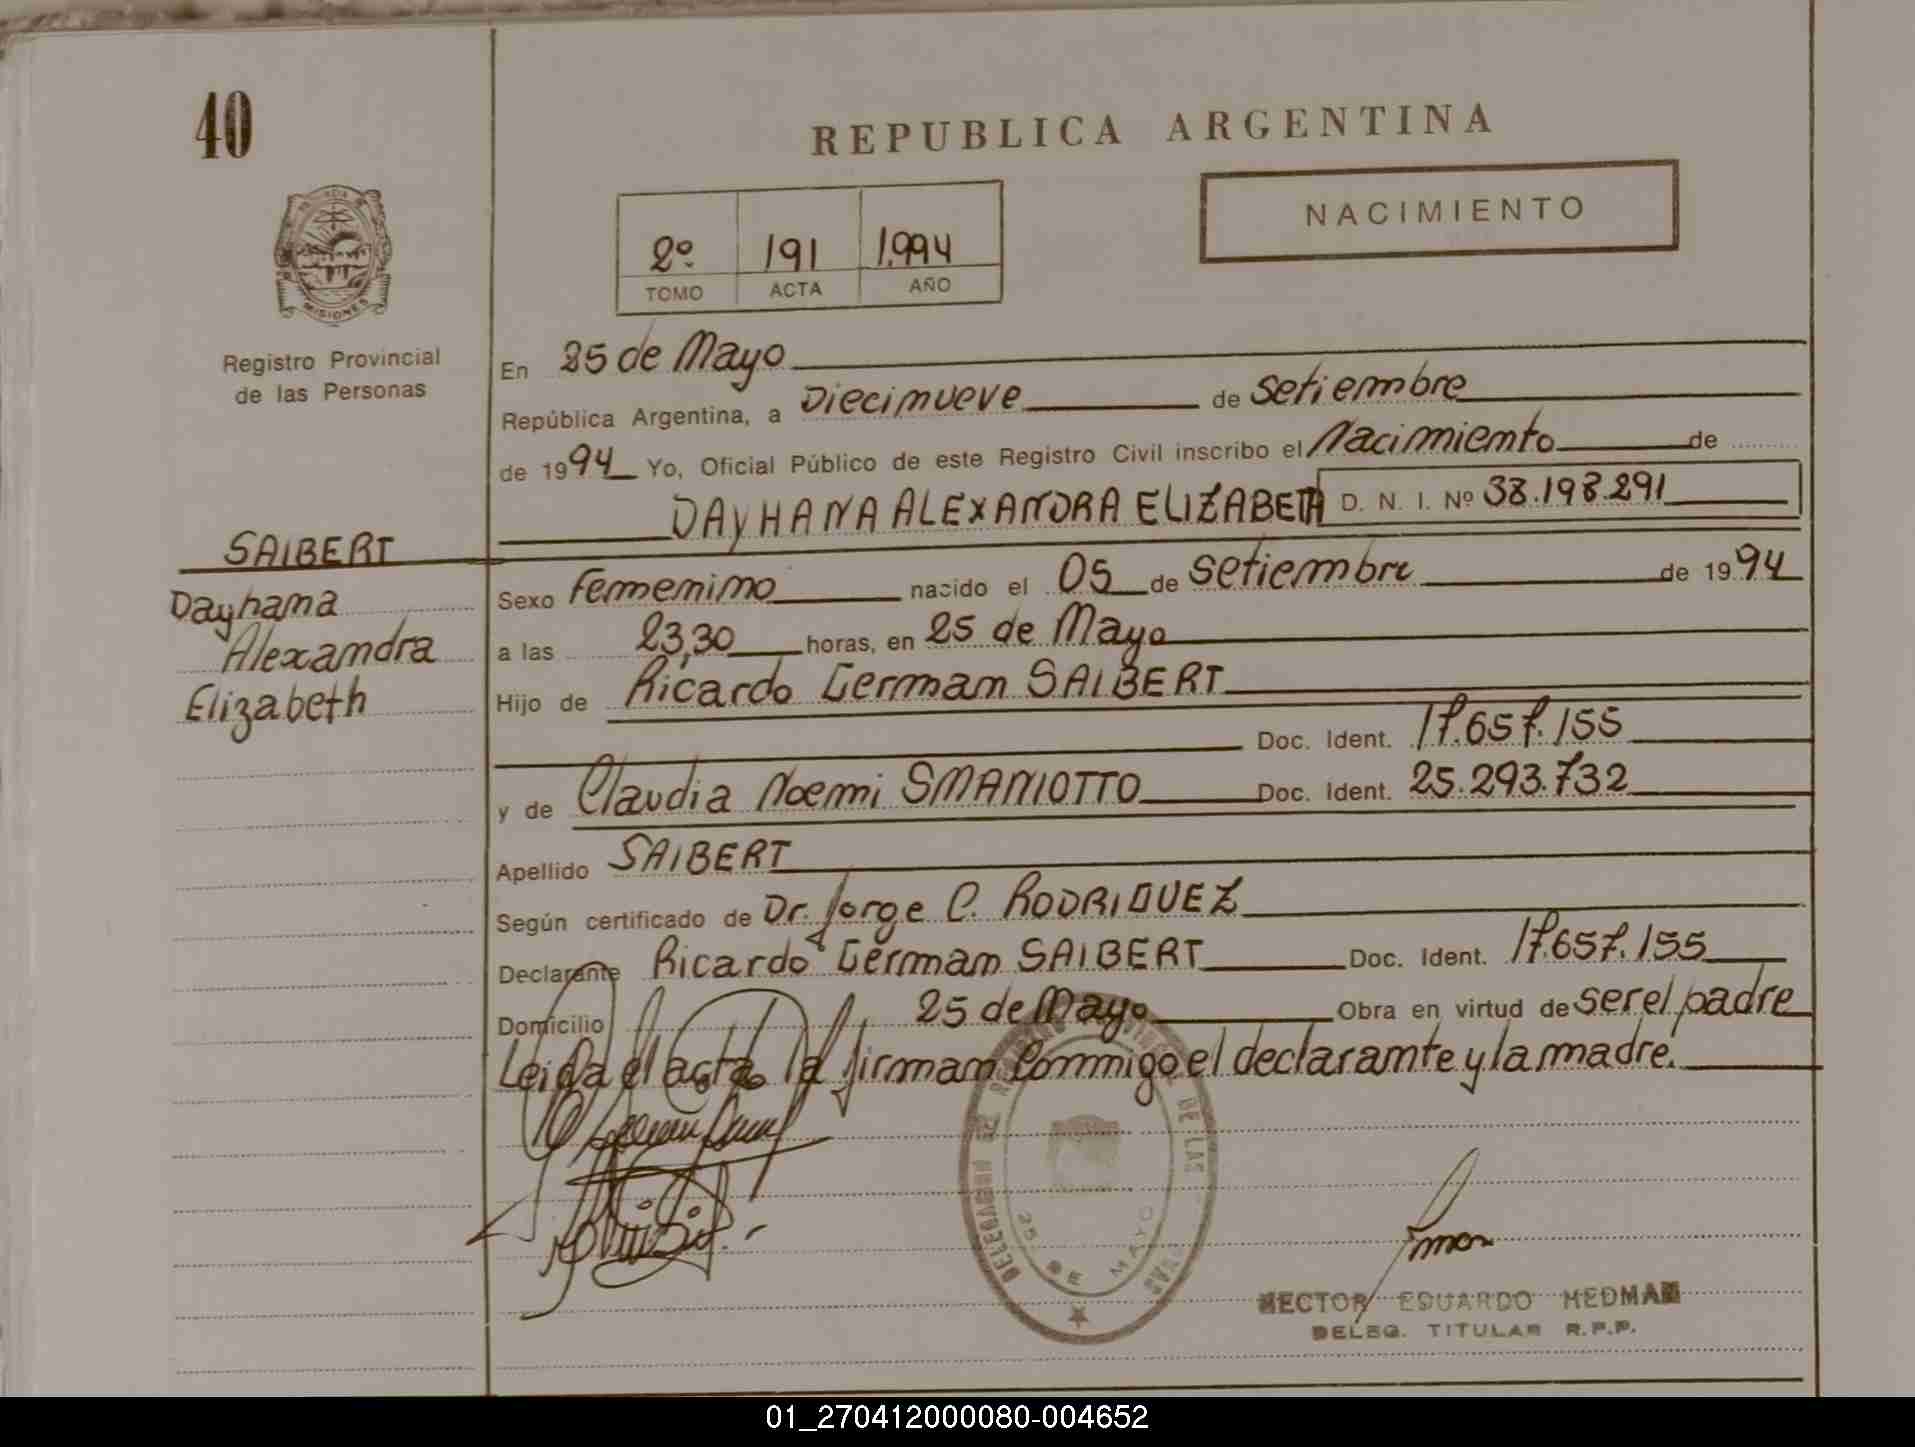 40
REPUBLICA ARGENTINA
NACIMIENTO
2º 191 1.994
TOMO ACTA AÑO
MISIONES
Registro Provincial
de las Personas
En 25 de Mayo
República Argentina, a Diecinueve de Setiembre
de 1994 Yo, Oficial Público de este Registro Civil inscribo el Nacimiento de
DAYHANA ALEXANDRA ELIZABETH D. N. I. Nº 38.198.291
SAIBERT
Dayhana
Alexandra
Elizabeth
Sexo Femenino nacido el 05 de Setiembre de 1994
a las 23,30 horas, en 25 de Mayo
Hijo de Ricardo German SAIBERT
Doc. Ident. 17.657.155
y de Claudia Noemi SMANIOTTO Doc. Ident. 25.293.732
Apellido SAIBERT
Según certificado de Dr. Jorge C. RODRIGUEZ
Declarante Ricardo German SAIBERT Doc. Ident. 17.657.155
Domicilio 25 de Mayo Obra en virtud de ser el padre
Leida el acta la firman Conmigo el declarante y la madre.
DE LAS
25 DE MAYO
HECTOR EDUARDO HEDMAN
DELEG. TITULAR R.P.P.
01_270412000080-004652